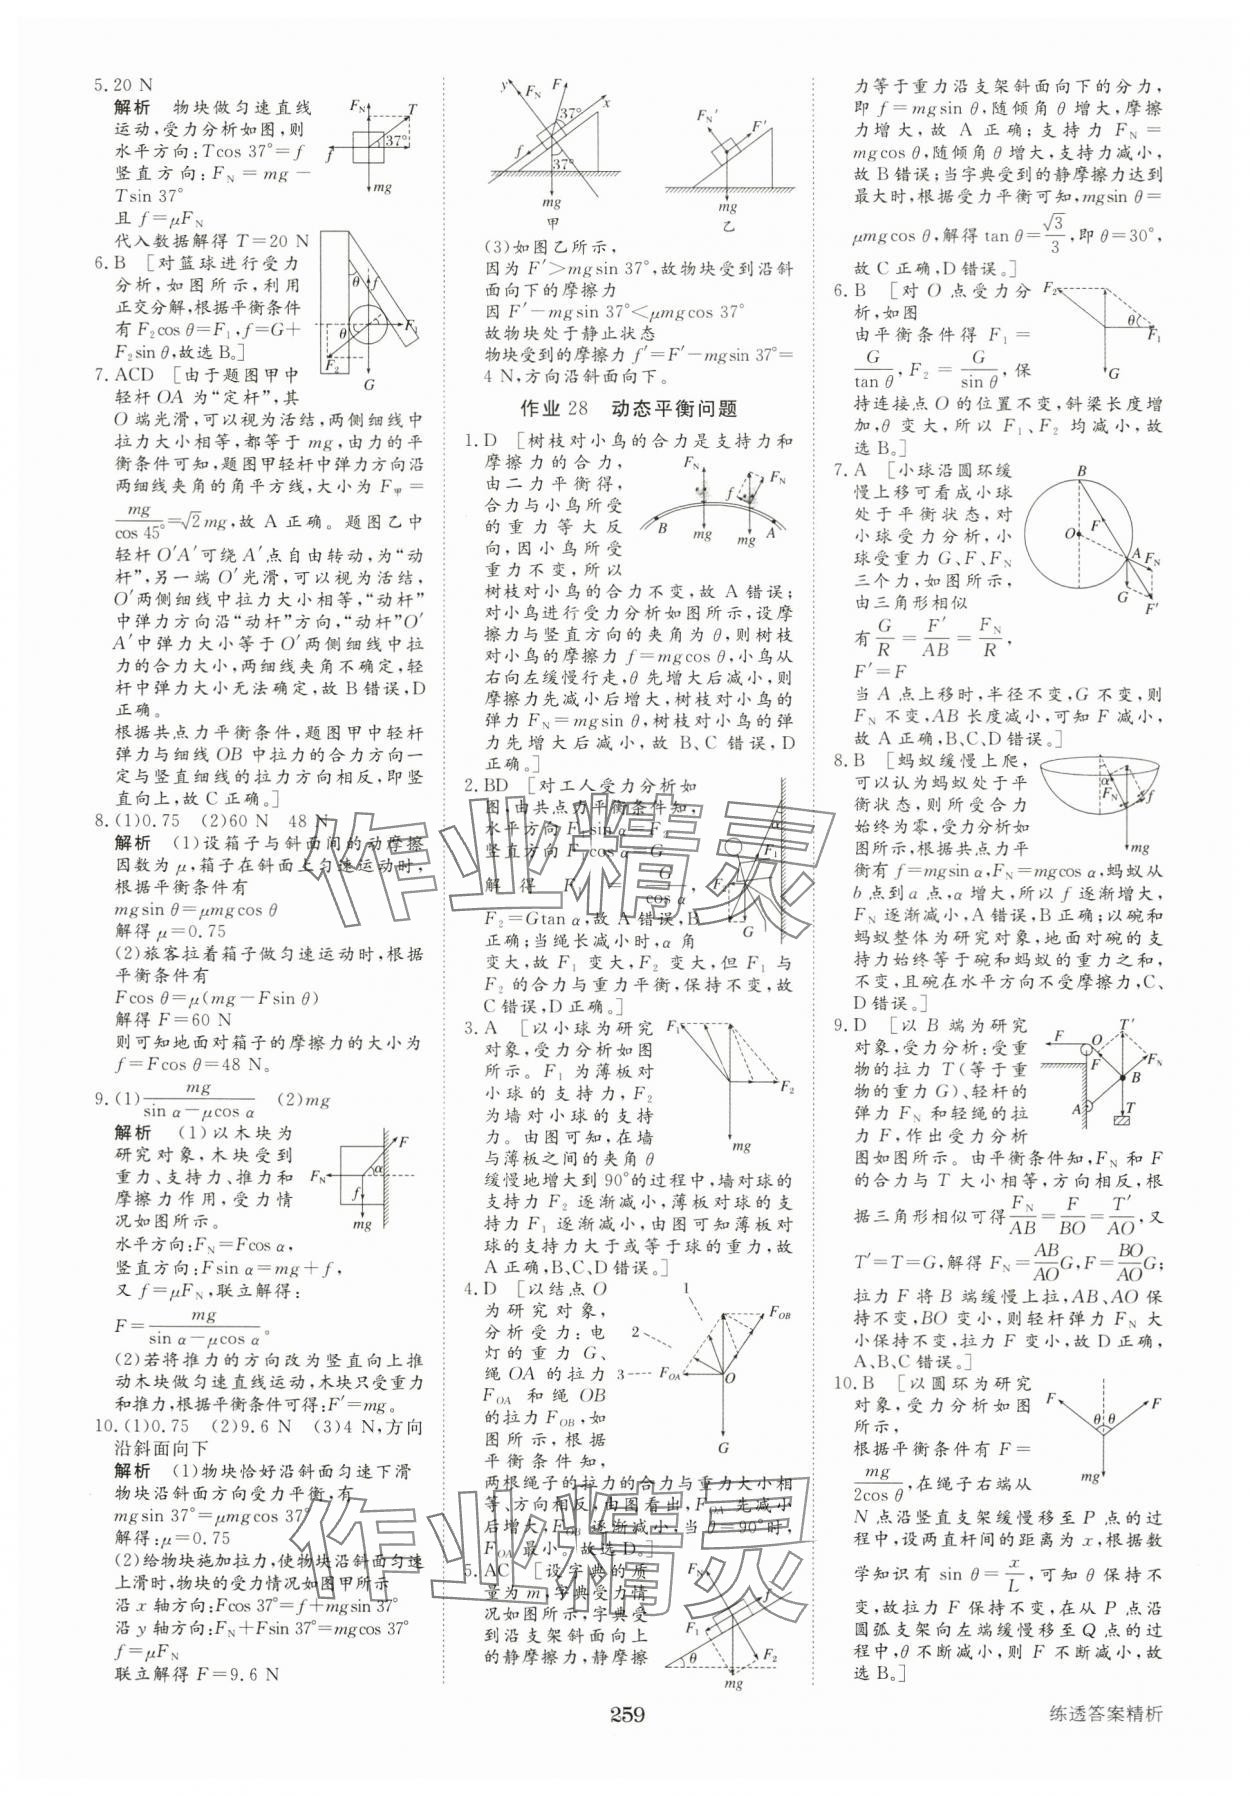 5.20 N
解析 物块做匀速直线
运动,受力分析如图,则
水平方向:Tcos 37°=f
竖直方向:F_N=mg-
Tsin 37°
且 f=μF_N
代入数据解得 T=20 N
6.B [对篮球进行受力
分析,如图所示,利用
正交分解,根据平衡条件
有 F₂cos θ=F₁,f=G+
F₂sin θ,故选 B。]
7.ACD [由于题图甲中
轻杆 OA 为“定杆”,其
O 端光滑,可以视为活结,两侧细线中
拉力大小相等,都等于 mg,由力的平
衡条件可知,题图甲轻杆中弹力方向沿
两细线夹角的角平方线,大小为 F甲=
mg/cos 45°=√2mg,故 A 正确。题图乙中
轻杆 O′A′可绕 A′点自由转动,为“动
杆”,另一端 O′光滑,可以视为活结,
O′两侧细线中拉力大小相等,“动杆”
中弹力方向沿“动杆”方向,“动杆”O′
A′中弹力大小等于 O′两侧细线中拉
力的合力大小,两细线夹角不确定,轻
杆中弹力大小无法确定,故 B 错误,D
正确。
根据共点力平衡条件,题图甲中轻杆
弹力与细线 OB 中拉力的合力方向一
定与竖直细线的拉力方向相反,即竖
直向上,故 C 正确。]
8.(1)0.75 (2)60 N 48 N
解析 (1)设箱子与斜面间的动摩擦
因数为 μ,箱子在斜面上匀速运动时,
根据平衡条件有
mgsin θ=μmgcos θ
解得 μ=0.75
(2)旅客拉着箱子做匀速运动时,根据
平衡条件有
Fcos θ=μ(mg-Fsin θ)
解得 F=60 N
则可知地面对箱子的摩擦力的大小为
f=Fcos θ=48 N。
9.(1)mg/(sin α-μcos α) (2)mg
解析 (1)以木块为
研究对象,木块受到
重力、支持力、推力和
摩擦力作用,受力情
况如图所示。
水平方向:F_N=Fcos α,
竖直方向:Fsin α=mg+f,
又 f=μF_N,联立解得:
F=mg/(sin α-μcos α)。
(2)若将推力的方向改为竖直向上推
动木块做匀速直线运动,木块只受重力
和推力,根据平衡条件可得:F′=mg。
10.(1)0.75 (2)9.6 N (3)4 N,方向
沿斜面向下
解析 (1)物块恰好沿斜面匀速下滑
物块沿斜面方向受力平衡,有
mgsin 37°=μmgcos 37°
解得:μ=0.75
(2)给物块施加拉力,使物块沿斜面匀速
上滑时,物块的受力情况如图甲所示
沿 x 轴方向:Fcos 37°=f+mgsin 37°
沿 y 轴方向:F_N+Fsin 37°=mgcos 37°
f=μF_N
联立解得 F=9.6 N
甲 乙
(3)如图乙所示,
因为 F′>mgsin 37°,故物块受到沿斜
面向下的摩擦力
因 F′-mgsin 37°<μmgcos 37°
故物块处于静止状态
物块受到的摩擦力 f′=F′-mgsin 37°=
4 N,方向沿斜面向下。
作业 28 动态平衡问题
1.D [树枝对小鸟的合力是支持力和
摩擦力的合力,
由二力平衡得,
合力与小鸟所受
的重力等大反
向,因小鸟所受
重力不变,所以
树枝对小鸟的合力不变,故 A 错误;
对小鸟进行受力分析如图所示,设摩
擦力与竖直方向的夹角为 θ,则树枝
对小鸟的摩擦力 f=mgcos θ,小鸟从
右向左缓慢行走,θ 先增大后减小,则
摩擦力先减小后增大,树枝对小鸟的
弹力 F_N=mgsin θ,树枝对小鸟的弹
力先增大后减小,故 B、C 错误,D
正确。]
2.BD [对工人受力分析如
图,由共点力平衡条件知,
水平方向 F₁sin α=F₂
竖直方向 F₁cos α=G
解得 F₁=G/cos α,
F₂=Gtan α,故 A 错误,B
正确;当绳长减小时,α 角
变大,故 F₁ 变大,F₂ 变大,但 F₁ 与
F₂ 的合力与重力平衡,保持不变,故
C 错误,D 正确。]
3.A [以小球为研究
对象,受力分析如图
所示。F₁ 为薄板对
小球的支持力,F₂
为墙对小球的支持
力。由图可知,在墙
与薄板之间的夹角 θ
缓慢地增大到 90°的过程中,墙对球的
支持力 F₂ 逐渐减小,薄板对球的支
持力 F₁ 逐渐减小,由图可知薄板对
球的支持力大于或等于球的重力,故
A 正确,B、C、D 错误。]
4.D [以结点 O
为研究对象,
分析受力:电
灯的重力 G、
绳 OA 的拉力
F_OA 和绳 OB
的拉力 F_OB,如
图所示,根据
平衡条件知,
两根绳子的拉力的合力与重力大小相
等、方向相反,由图看出,F_OA 先减小
后增大,F_OB 逐渐减小,当 θ=90°时,
F_OA 最小。故选 D。]
5.AC [设字典的质
量为 m,字典受力情
况如图所示,字典受
到沿支架斜面向上
的静摩擦力,静摩擦
力等于重力沿支架斜面向下的分力,
即 f=mgsin θ,随倾角 θ 增大,摩擦
力增大,故 A 正确;支持力 F_N=
mgcos θ,随倾角 θ 增大,支持力减小,
故 B 错误;当字典受到的静摩擦力达到
最大时,根据受力平衡可知,mgsin θ=
μmgcos θ,解得 tan θ=√3/3,即 θ=30°,
故 C 正确,D 错误。]
6.B [对 O 点受力分
析,如图
由平衡条件得 F₁=
G/tan θ,F₂=G/sin θ,保
持连接点 O 的位置不变,斜梁长度增
加,θ 变大,所以 F₁、F₂ 均减小,故
选 B。]
7.A [小球沿圆环缓
慢上移可看成小球
处于平衡状态,对
小球受力分析,小
球受重力 G、F、F_N
三个力,如图所示,
由三角形相似
有 G/R=F′/AB=F_N/R,
F′=F
当 A 点上移时,半径不变,G 不变,则
F_N 不变,AB 长度减小,可知 F 减小,
故 A 正确,B、C、D 错误。]
8.B [蚂蚁缓慢上爬,
可以认为蚂蚁处于平
衡状态,则所受合力
始终为零,受力分析
如图所示,根据共点力平
衡有 f=mgsin α,F_N=mgcos α,蚂蚁从
b 点到 a 点,α 增大,所以 f 逐渐增大,
F_N 逐渐减小,A 错误,B 正确;以碗和
蚂蚁整体为研究对象,地面对碗的支
持力始终等于碗和蚂蚁的重力之和,
不变,且碗在水平方向不受摩擦力,C、
D 错误。]
9.D [以 B 端为研究
对象,受力分析:受重
物的拉力 T(等于重
物的重力 G)、轻杆的
弹力 F_N 和轻绳的拉
力 F,作出受力分析
图如图所示。由平衡条件知,F_N 和 F
的合力与 T 大小相等,方向相反,根
据三角形相似可得F_N/AB=F/BO=T′/AO,又
T′=T=G,解得 F_N=AB/AO G,F=BO/AO G;
拉力 F 将 B 端缓慢上拉,AB、AO 保
持不变,BO 变小,则轻杆弹力 F_N 大
小保持不变,拉力 F 变小,故 D 正确,
A、B、C 错误。]
10.B [以圆环为研究
对象,受力分析如图
所示,
根据平衡条件有 F=
mg/2cos θ,在绳子右端从
N 点沿竖直支架缓慢移至 P 点的过
程中,设两直杆间的距离为 x,根据数
学知识有 sin θ=x/L,可知 θ 保持不
变,故拉力 F 保持不变,在从 P 点沿
圆弧支架向左端缓慢移至 Q 点的过
程中,θ 不断减小,则 F 不断减小,故
选 B。]
259
练透答案精析
作业精灵
作业精灵